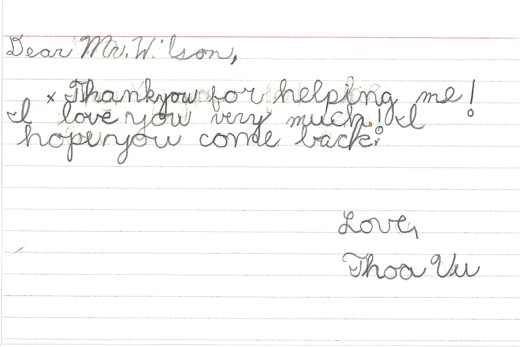 Dear Mr. Wilson,
x Thankyou for helping me!
I love you very much! I
hope you come back!
Love,
Thoa Vu